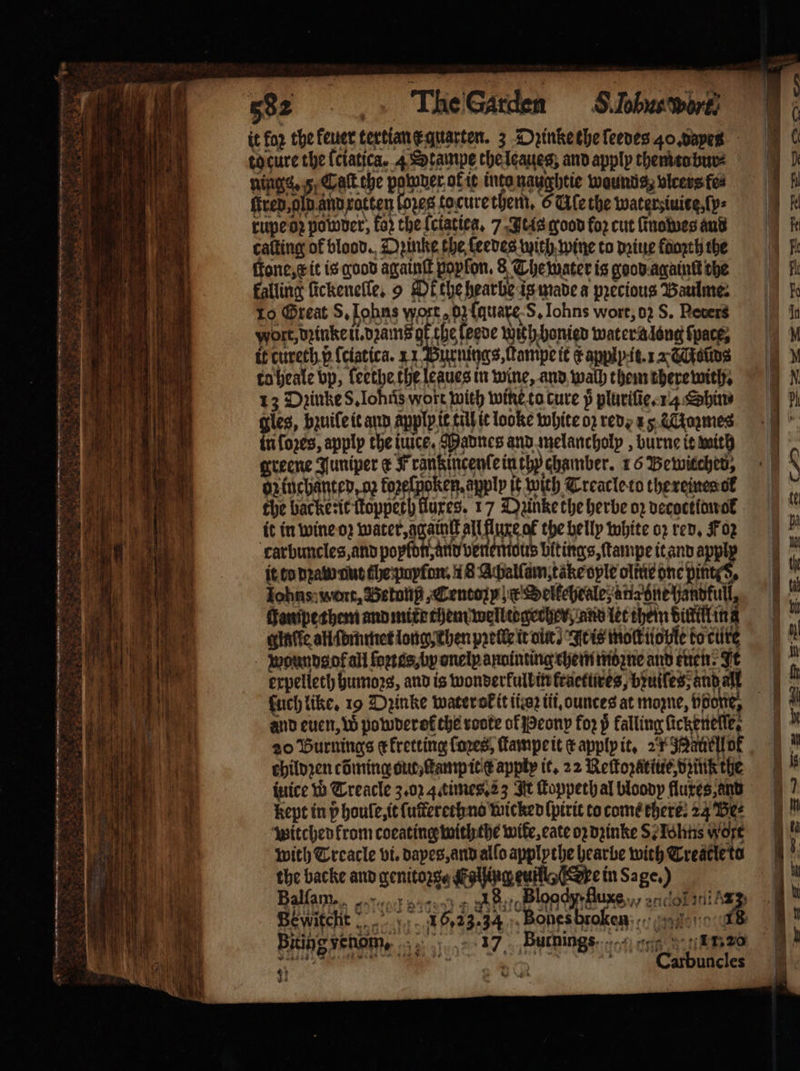 582 The Garden S. Iohns wort.
it for the feuer tertian & quarten. 3 Drinke the seedes 40. dayes
to cure the sciatica. 4 Stampe the leaues, and apply them to bur-
nings. 5. Cast the powder of it into naughtie wounds, vlcers fe-
stred, old and rotten sores to cure them. 6 Vse the water, iuice, sy-
rupe or powder, for the sciatica. 7 It is good for cut sinowes and
casting of blood. Drinke the seedes with wine to driue foorth the
stone, & it is good against poyson. 8 The water is good against the
falling sickenesse. 9 Of the hearbe is made a precious Baulme.
10 Great S. Iohns wort, or square S. Iohns wort, or S. Peters
wort, drinke ii. drams of the seede with honied water a long space,
it cureth þͤ sciatica. 11 Burnings, stampe it & apply it. 12 Wounds
to heale vp, seethe the leaues in wine, and wash them therewith.
13 Drinke S. Iohns wort with wine to cure þͤ plurisie. 14 Shin-
gles, bruise it and apply it till it looke white or red. 15 Wormes
in sores, apply the iuice. Madnes and melancholy, burne it with
greene Juniper & Frankincense in thy chamber. 16 Bewitched,
or inchanted, or forespoken, apply it with Treacle to the reines of
the backe: it stoppeth fluxes. 17 Drinke the herbe or decoction of
it in wine or water, against all fluxe of the belly white or red. For
carbuncles, and poyson, and venemous bitings, stampe it and apply
it to draw out the poyson. 18 Balsam, take oyle oliue one pint, S.
Iohns wort, Betony, Centory, & Selfeheale, ana one handfull,
stampe them and mixe them well together, and let them distill in a
glasse all sommer long, then presse it out. It is most noble to cure
wounds of all sortes, by onely anointing them morne and euen. It
expelleth humors, and is wonderfull in fractures, bruises, and all
such like. 19 Drinke water of it ii. or iii, ounces at morne, noone,
and euen, wͭ powder of the roote of Peony for þͤ falling sickenesse.
20 Burnings & fretting sores, stampe it & apply it. 21 Nauell of
children cōming out, stamp it & apply it. 22 Restoratiue, drink the
iuice wͭ Treacle 3. or 4. times. 23 It stoppeth al bloody fluxes, and
kept in þͤ house, it suffereth no wicked spirit to come there. 24 Be-
witched from coeating with the wife, eate or drinke S. Iohns wort
with Treacle vi. dayes, and also apply the hearbe with Treacle to
the backe and genitors. Falling euill, (See in Sage.)
Balsam. 18. Bloody-fluxe,
Bewitcht 16,23.34 Bones broken. 18
Biting venom, 17 Burnings. 11.20
Carbuncles